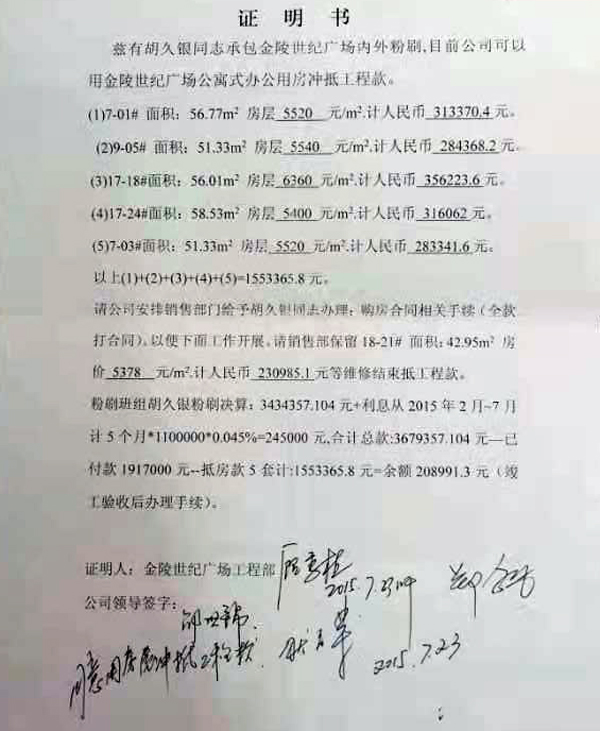 证 明 书
兹有胡久银同志承包金陵世纪广场内外粉刷,目前公司可以
用金陵世纪广场公寓式办公用房冲抵工程款。
(1)7-01# 面积：56.77m² 房层 5520 元/m².计人民币 313370.4 元。
(2)9-05# 面积：51.33m² 房层 5540 元/m².计人民币 284368.2 元。
(3)17-18#面积：56.01m² 房层 6360 元/m².计人民币 356223.6 元。
(4)17-24#面积：58.53m² 房层 5400 元/m².计人民币 316062 元。
(5)7-03#面积：51.33m² 房层 5520 元/m².计人民币 283341.6 元。
以上(1)+(2)+(3)+(4)+(5)=1553365.8 元。
请公司安排销售部门给予胡久银同志办理：购房合同相关手续（全款
打合同）。以便下面工作开展。请销售部保留 18-21# 面积：42.95m² 房
价 5378 元/m².计人民币 230985.1 元等维修结束抵工程款。
粉刷班组胡久银粉刷决算：3434357.104 元+利息从 2015 年 2 月~7 月
计 5 个月*1100000*0.045%=245000 元,合计总款:3679357.104 元—已
付款 1917000 元--抵房款 5 套计:1553365.8 元=余额 208991.3 元（竣
工验收后办理手续）。
证明人：金陵世纪广场工程部
2015.7.23
公司领导签字：
同意用房屋冲抵工程款.
2015.7.23